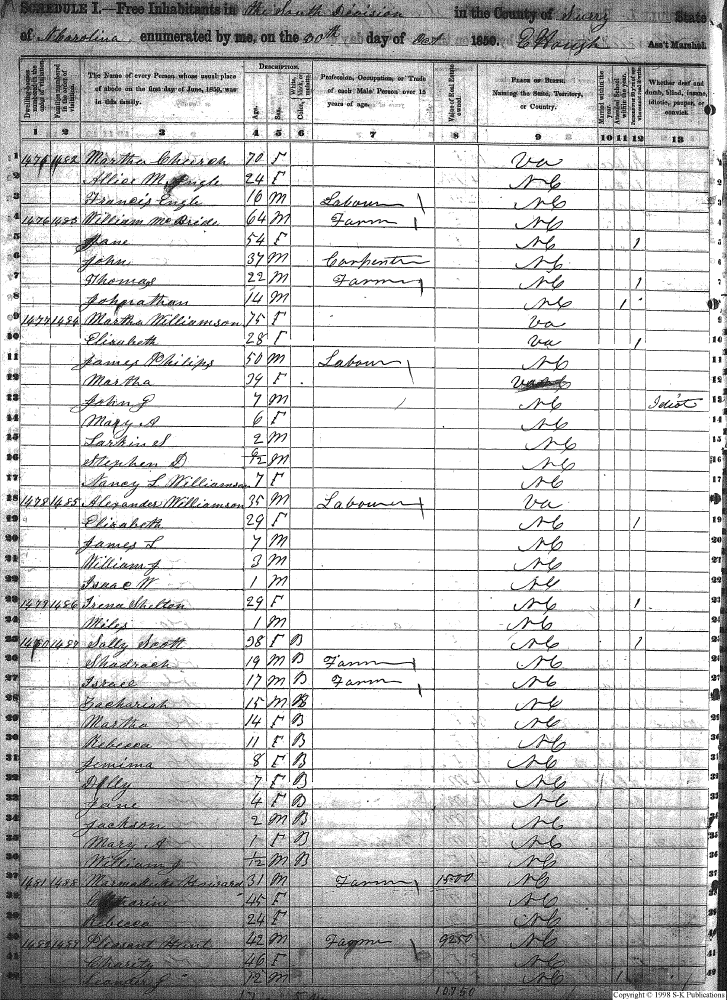 SCHEDULE I.—Free Inhabitants in the South Division in the County of Surry State
of N Carolina enumerated by me, on the 30th day of Oct 1850. Ass't Marshal.
DESCRIPTION.
The Name of every Person whose usual place of abode on the first day of June, 1850, was in this family.
Age.
Sex.
Profession, Occupation, or Trade of each Male Person over 15 years of age.
Value of Real Estate owned.
PLACE OF BIRTH. Naming the State, Territory, or Country.
Whether deaf and dumb, blind, insane, idiotic, pauper, or convict.
1 2 3 4 5 6 7 8 9 10 11 12 13
1 1475 1482 Martha Church 70 F Va
2 Allice M Engle 24 F NC
3 Francis Engle 16 M Labourer NC
4 1476 1483 William McBride 64 M Farmer NC
5 Jane 54 F NC 1
6 John 37 M Carpenter NC
7 Thomas 22 M Farmer NC 1
8 Johnathan 14 M NC 1
9 1477 1484 Martha Williamson 75 F Va
10 Elizabeth 28 F Va 1
11 James Philips 50 M Labourer NC
12 Martha 39 F
13 John G 7 M NC Idiot
14 Mary A 6 F NC
15 Larkin S 2 M NC
16 Stephen D M NC
17 Nancy L Williamson 7 F NC
18 1478 1485 Alexander Williamson 35 M Labourer Va
19 Elizabeth 29 F NC 1
20 James L 7 M NC
21 William J 3 M NC
22 Isaac W 1 M NC
23 1479 1486 Irena Shelton 29 F NC 1
24 Miles 1 M NC
25 1480 1487 Sally Scott 38 F B NC 1
26 Shadrach 19 M B Farmer NC
27 Israel 17 M B Farmer NC
28 Zachariah 15 M B NC
29 Martha 14 F B NC
30 Rebecca 11 F B NC
31 Jemima 8 F B NC
32 Dilly 7 F B NC
33 Jane 4 F B NC
34 Jackson 2 M B NC
35 Mary A 1 F B NC
36 William J M B NC
37 1481 1488 Marmaduke 31 M Farmer 1500 NC
38 Catharine 45 F NC
39 Rebecca 24 F NC
40 1482 1489 Pleasant Hunt 42 M Farmer 9250 NC
41 Charity 46 F NC
42 Leander J 12 M NC 1
10750
Copyright © 1998 S-K Publications